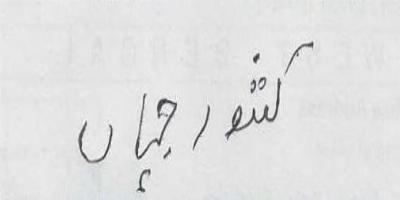 کشور جہاں